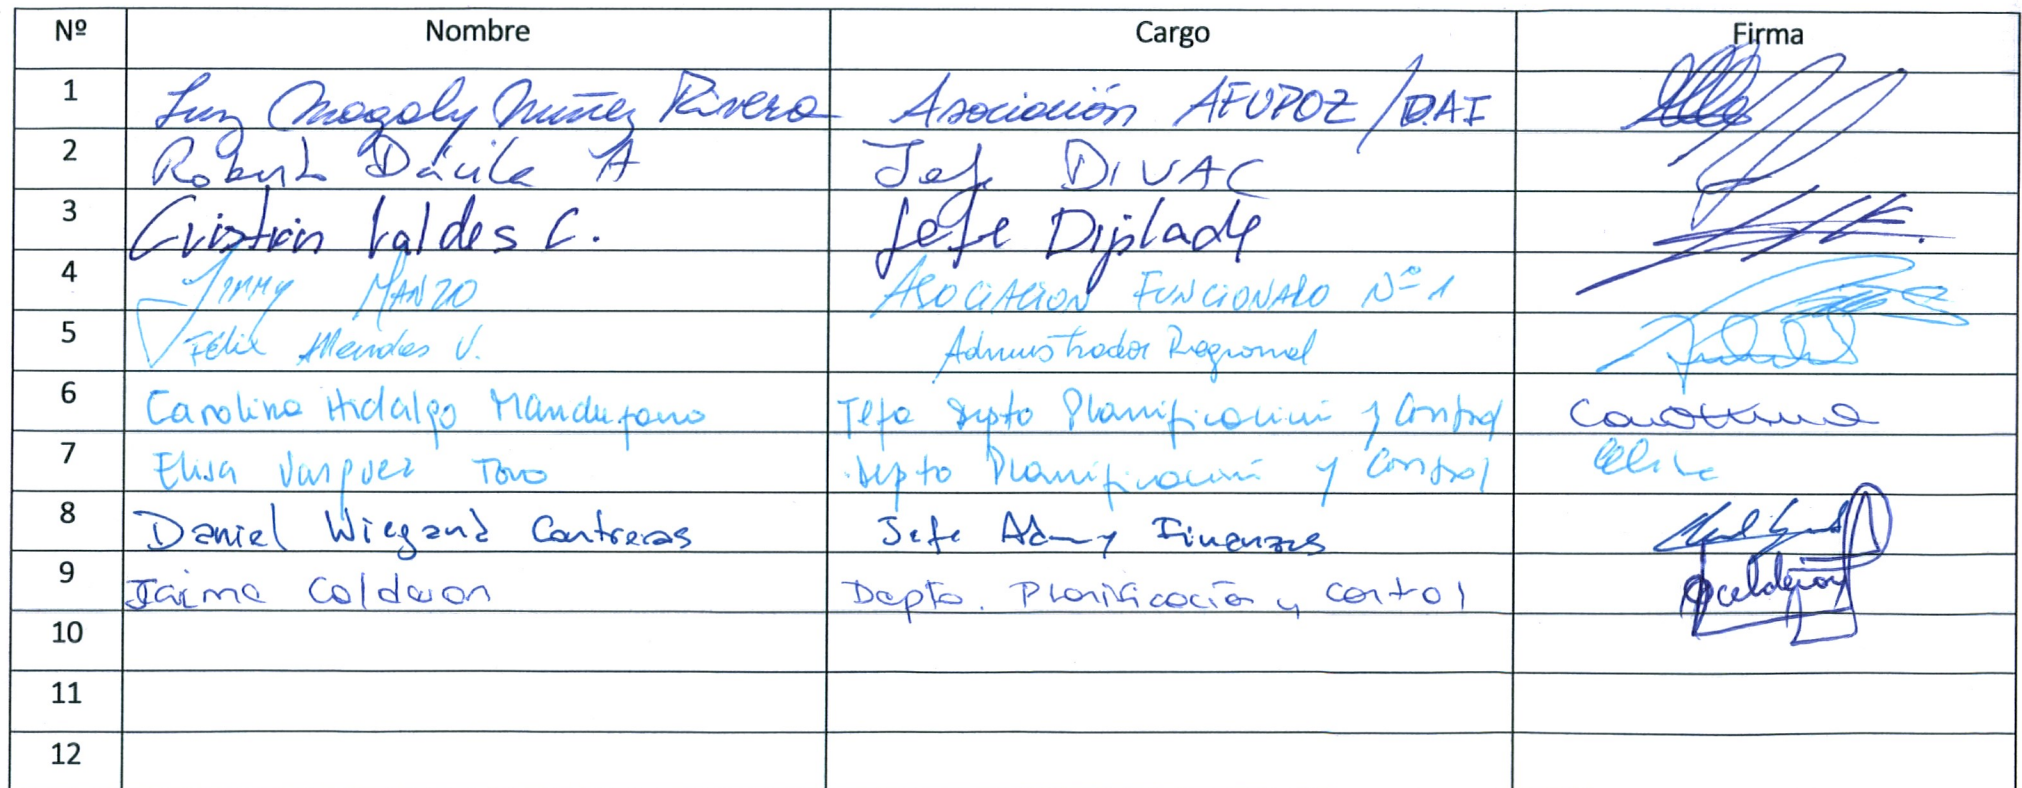 Nº Nombre Cargo Firma
1 Luz Magaly Núñez Rivera Asociación AFUPOZ / DAI
2 Roberto Dávila A Jefe DIVAC
3 Cristián Valdes C. Jefe Diplade
4 Jimmy MANZO ASOCIACION FUNCIONARIO Nº 1
5 Félix Mendes V. Administrador Regional
6 Carolina Hidalgo Jefa Depto Planificación y Control
7 Elisa Vasquez Toro Depto Planificación y Control
8 Daniel Wiegand Contreras Jefe Adm y Finanzas
9 Jaime Calderon Depto. Planificación y Control
10
11
12